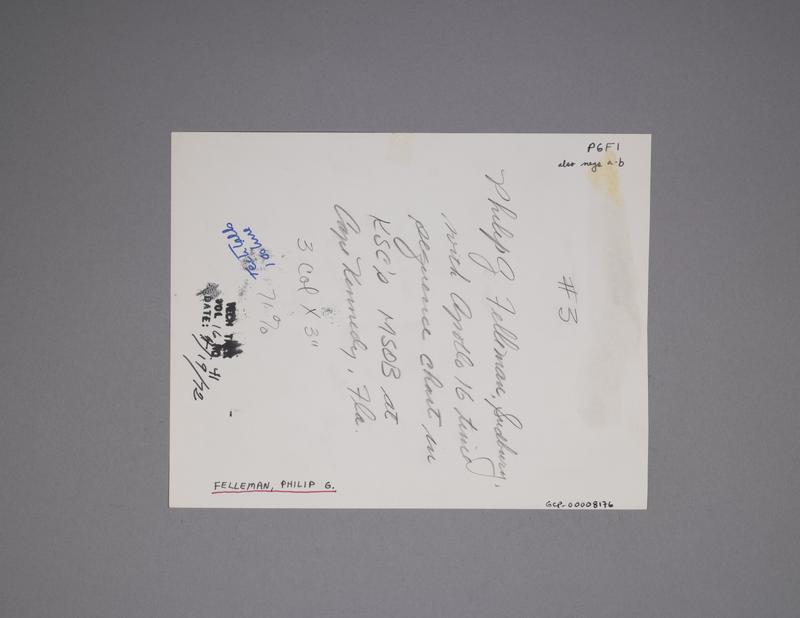 PGF1
also negs a-b
#3
Philip G. Felleman, Sudbury,
with Apollo 16 timed
sequence chart in
KSC's MSOB at
Cape Kennedy, Fla.
3 Col X 3"
71%
Tech Talk
VOL 16 NO. 41
DATE: 4/19/72
FELLEMAN, PHILIP G.
GCP-00008176